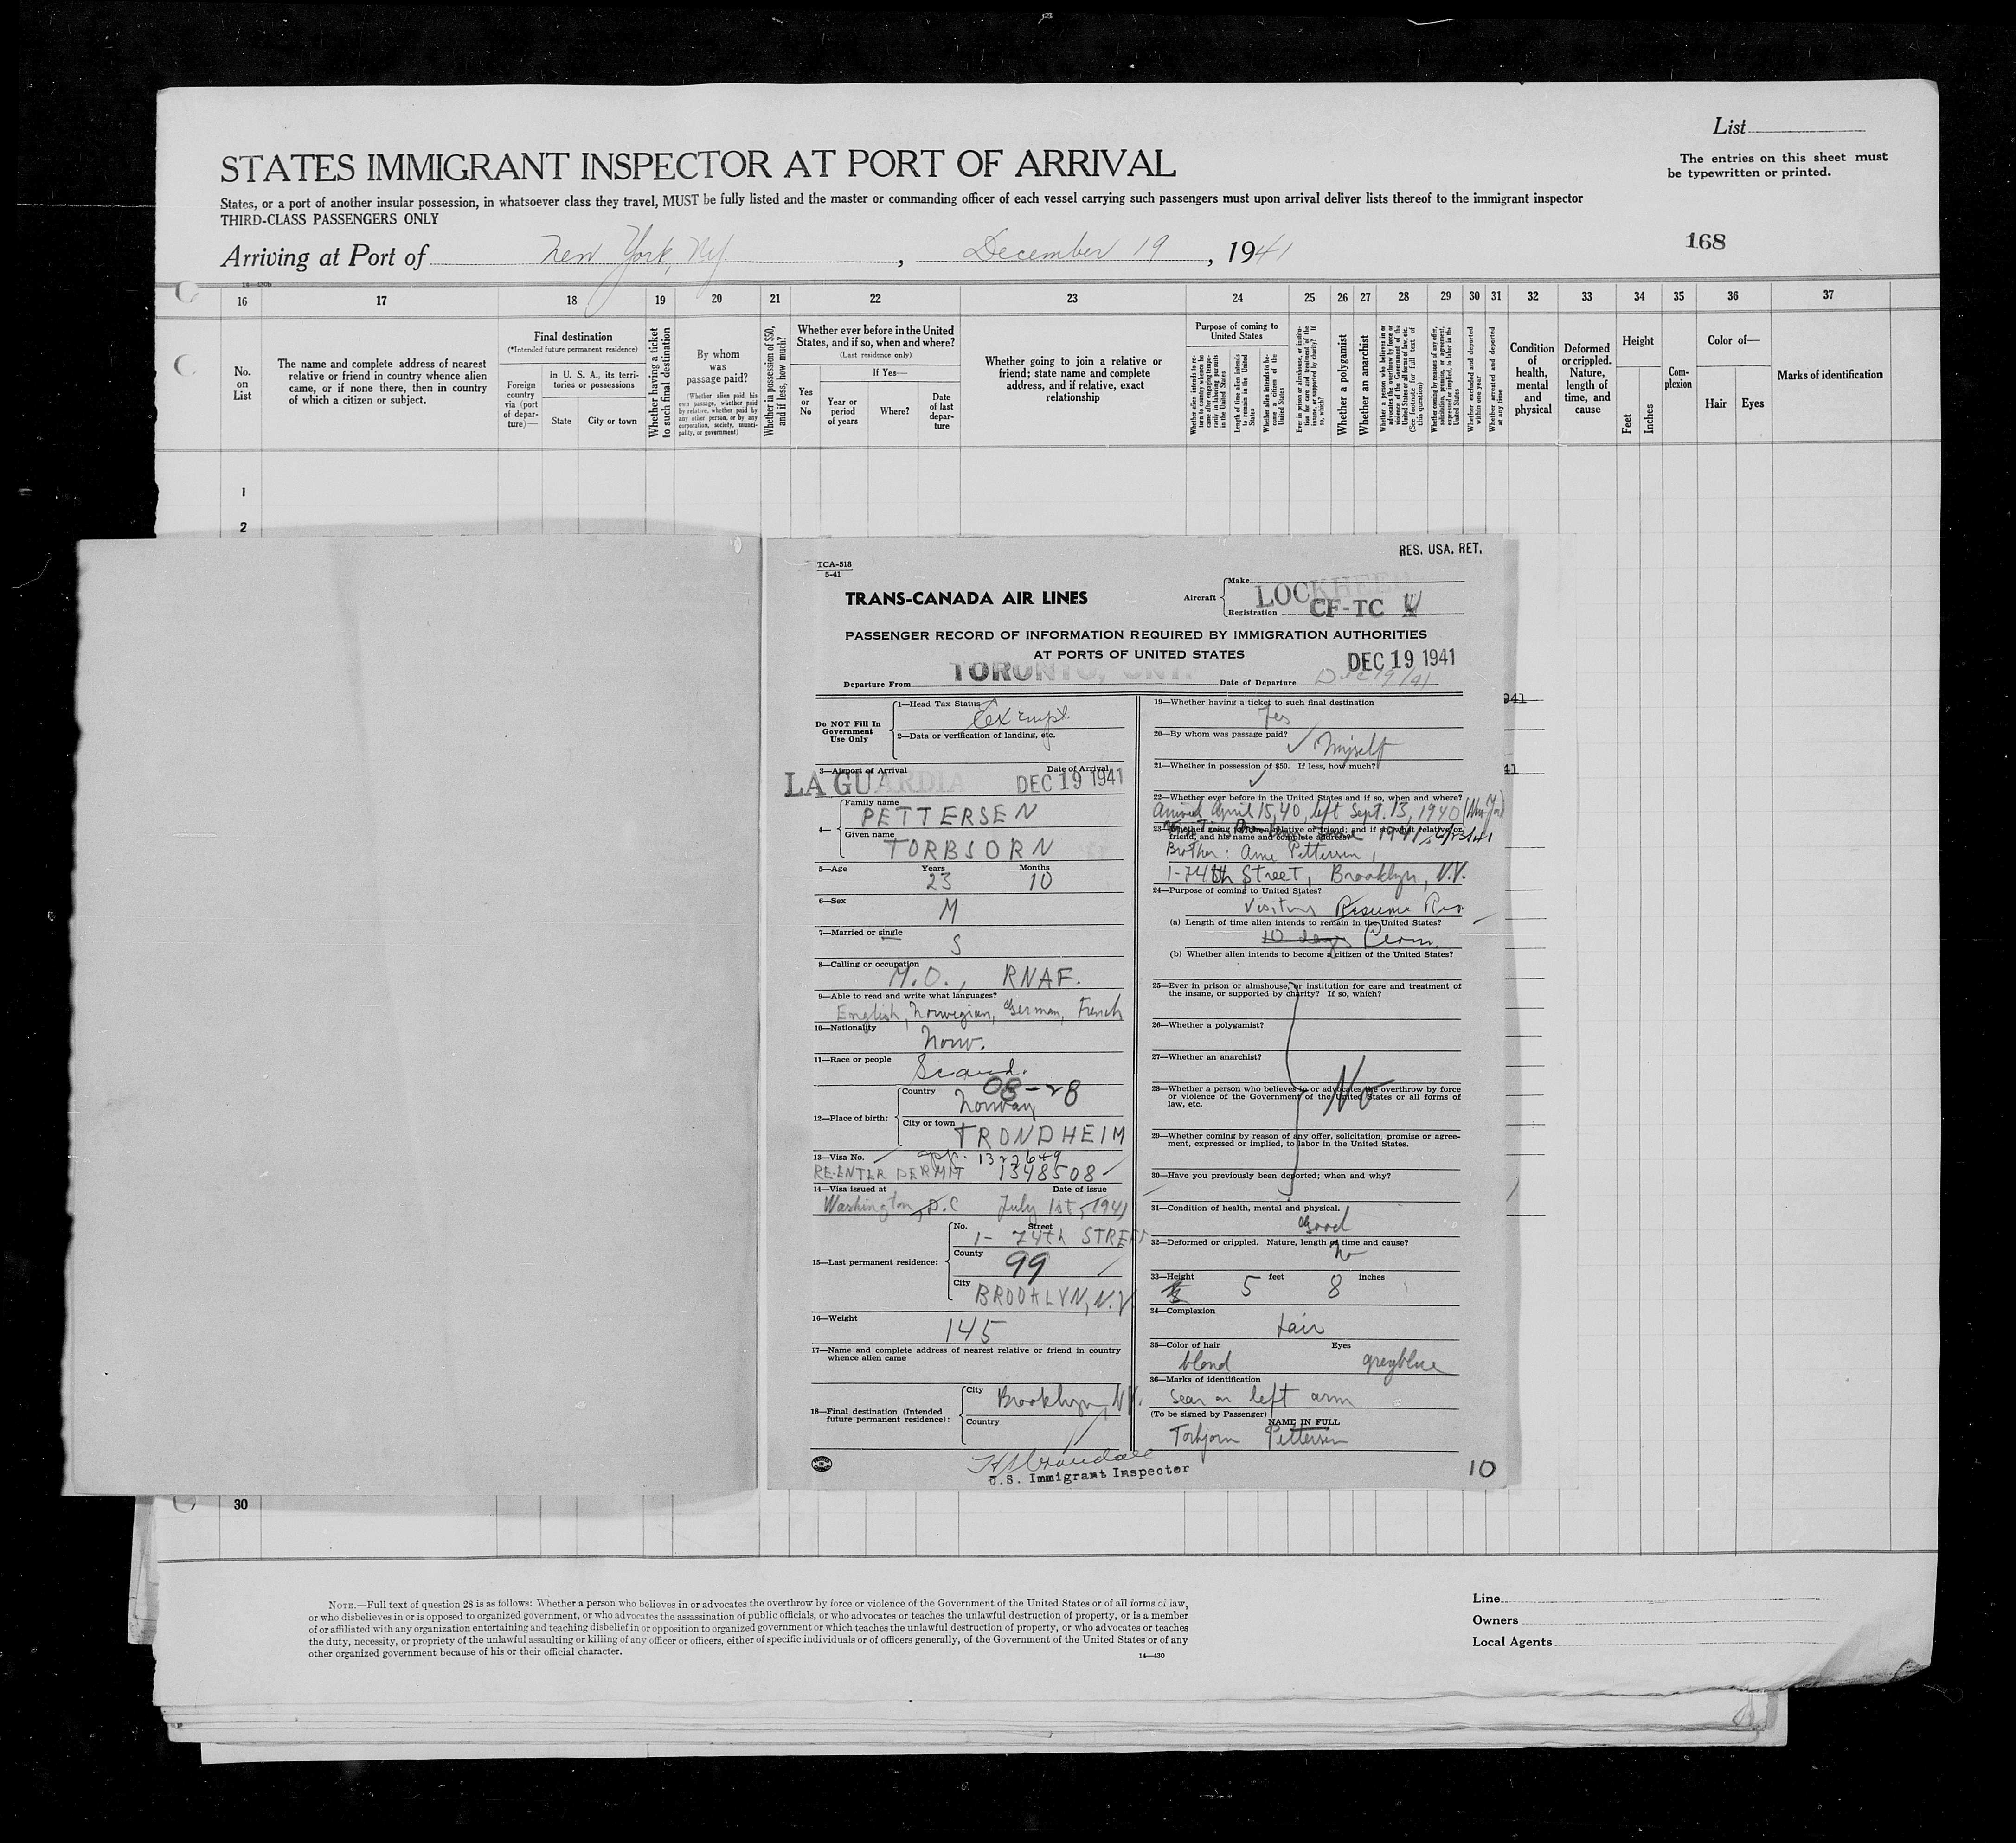 List
STATES IMMIGRANT INSPECTOR AT PORT OF ARRIVAL
The entries on this sheet must
be typewritten or printed.
States, or a port of another insular possession, in whatsoever class they travel, MUST be fully listed and the master or commanding officer of each vessel carrying such passengers must upon arrival deliver lists thereof to the immigrant inspector
THIRD-CLASS PASSENGERS ONLY
168
Arriving at Port of New York, NY, December 19, 1941
16 17 18 19 20 21 22 23 24 25 26 27 28 29 30 31 32 33 34 35 36 37
No.
on
List
The name and complete address of nearest
relative or friend in country whence alien
came, or if none there, then in country
of which a citizen or subject.
Final destination
(*Intended future permanent residence)
Foreign
country
via (port
of depar-
ture)—
In U. S. A., its terri-
tories or possessions
State
City or town
Whether having a ticket
to such final destination
By whom
was
passage paid?
(Whether alien paid his
own passage, whether paid
by relative, whether paid by
any other person, or by any
corporation, society, munici-
pality, or government)
Whether in possession of $50,
and if less, how much?
Whether ever before in the United
States, and if so, when and where?
(Last residence only)
Yes
or
No
If Yes—
Year or
period
of years
Where?
Date
of last
depar-
ture
Whether going to join a relative or
friend; state name and complete
address, and if relative, exact
relationship
Purpose of coming to
United States
Length of time alien intends
to remain in the United
States
Whether alien intends to be-
come a citizen of the
United States
Whether a polygamist
Whether an anarchist
Whether excluded and deported
within one year
Whether arrested and deported
at any time
Condition
of
health,
mental
and
physical
Deformed
or crippled.
Nature,
length of
time, and
cause
Height
Feet
Inches
Com-
plexion
Color of—
Hair
Eyes
Marks of identification
1
2
RES. USA. RET.
TCA-518
5-41
TRANS-CANADA AIR LINES
Aircraft
Make LOCKHEED
Registration CF-TC W
PASSENGER RECORD OF INFORMATION REQUIRED BY IMMIGRATION AUTHORITIES
AT PORTS OF UNITED STATES
DEC 19 1941
Departure From TORONTO, ONT. Date of Departure Dec 19/41
Do NOT Fill In
Government
Use Only
1—Head Tax Status Exempt
2—Data or verification of landing, etc.
3—Airport of Arrival Date of Arrival
LA GUARDIA DEC 19 1941
4—
Family name
PETTERSEN
Given name
TORBJORN
5—Age Years Months
23 10
6—Sex
M
7—Married or single
S
8—Calling or occupation
M.O., RNAF.
9—Able to read and write what languages?
English, Norwegian, German, French
10—Nationality
Norw.
11—Race or people
Scand.
08-28
12—Place of birth:
Country
Norway
City or town
TRONDHEIM
13—Visa No. app. 1327649
RE-ENTER PERMIT 1348508
14—Visa issued at Date of issue
Washington, D.C July 1st, 1941
15—Last permanent residence:
No. Street
1- 74th STREET
County
99
City
BROOKLYN, N.Y.
16—Weight
145
17—Name and complete address of nearest relative or friend in country
whence alien came
18—Final destination (Intended
future permanent residence):
City Brooklyn, NY.
Country
U.S. Immigrant Inspector
19—Whether having a ticket to such final destination
Yes
20—By whom was passage paid?
Myself
21—Whether in possession of $50. If less, how much?
22—Whether ever before in the United States and if so, when and where?
Arrived April 15, 40, left Sept. 13, 1940 (New York)
23—Whether going to join a relative or friend; and if so, what relative or
friend, and his name and complete address?
1941
Brother: Arne Pettersen,
1-74th Street, Brooklyn, N.Y.
24—Purpose of coming to United States?
Visiting Resume Res
(a) Length of time alien intends to remain in the United States?
10 days Perm.
(b) Whether alien intends to become a citizen of the United States?
25—Ever in prison or almshouse, or institution for care and treatment of
the insane, or supported by charity? If so, which?
26—Whether a polygamist?
27—Whether an anarchist?
No
28—Whether a person who believes in or advocates the overthrow by force
or violence of the Government of the United States or all forms of
law, etc.
29—Whether coming by reason of any offer, solicitation, promise or agree-
ment, expressed or implied, to labor in the United States.
30—Have you previously been deported; when and why?
31—Condition of health, mental and physical.
Good
32—Deformed or crippled. Nature, length of time and cause?
No
33—Height
5 feet 8 inches
34—Complexion
fair
35—Color of hair Eyes
blond greyblue
36—Marks of identification
Scar on left arm
(To be signed by Passenger)
NAME IN FULL
Torbjorn Pettersen
10
941
41
30
NOTE.—Full text of question 28 is as follows: Whether a person who believes in or advocates the overthrow by force or violence of the Government of the United States or of all forms of law,
or who disbelieves in or is opposed to organized government, or who advocates the assassination of public officials, or who advocates or teaches the unlawful destruction of property, or is a member
of or affiliated with any organization entertaining and teaching disbelief in or opposition to organized government or which teaches the unlawful destruction of property, or who advocates or teaches
the duty, necessity, or propriety of the unlawful assaulting or killing of any officer or officers, either of specific individuals or of officers generally, of the Government of the United States or of any
other organized government because of his or their official character.
14—430
Line
Owners
Local Agents